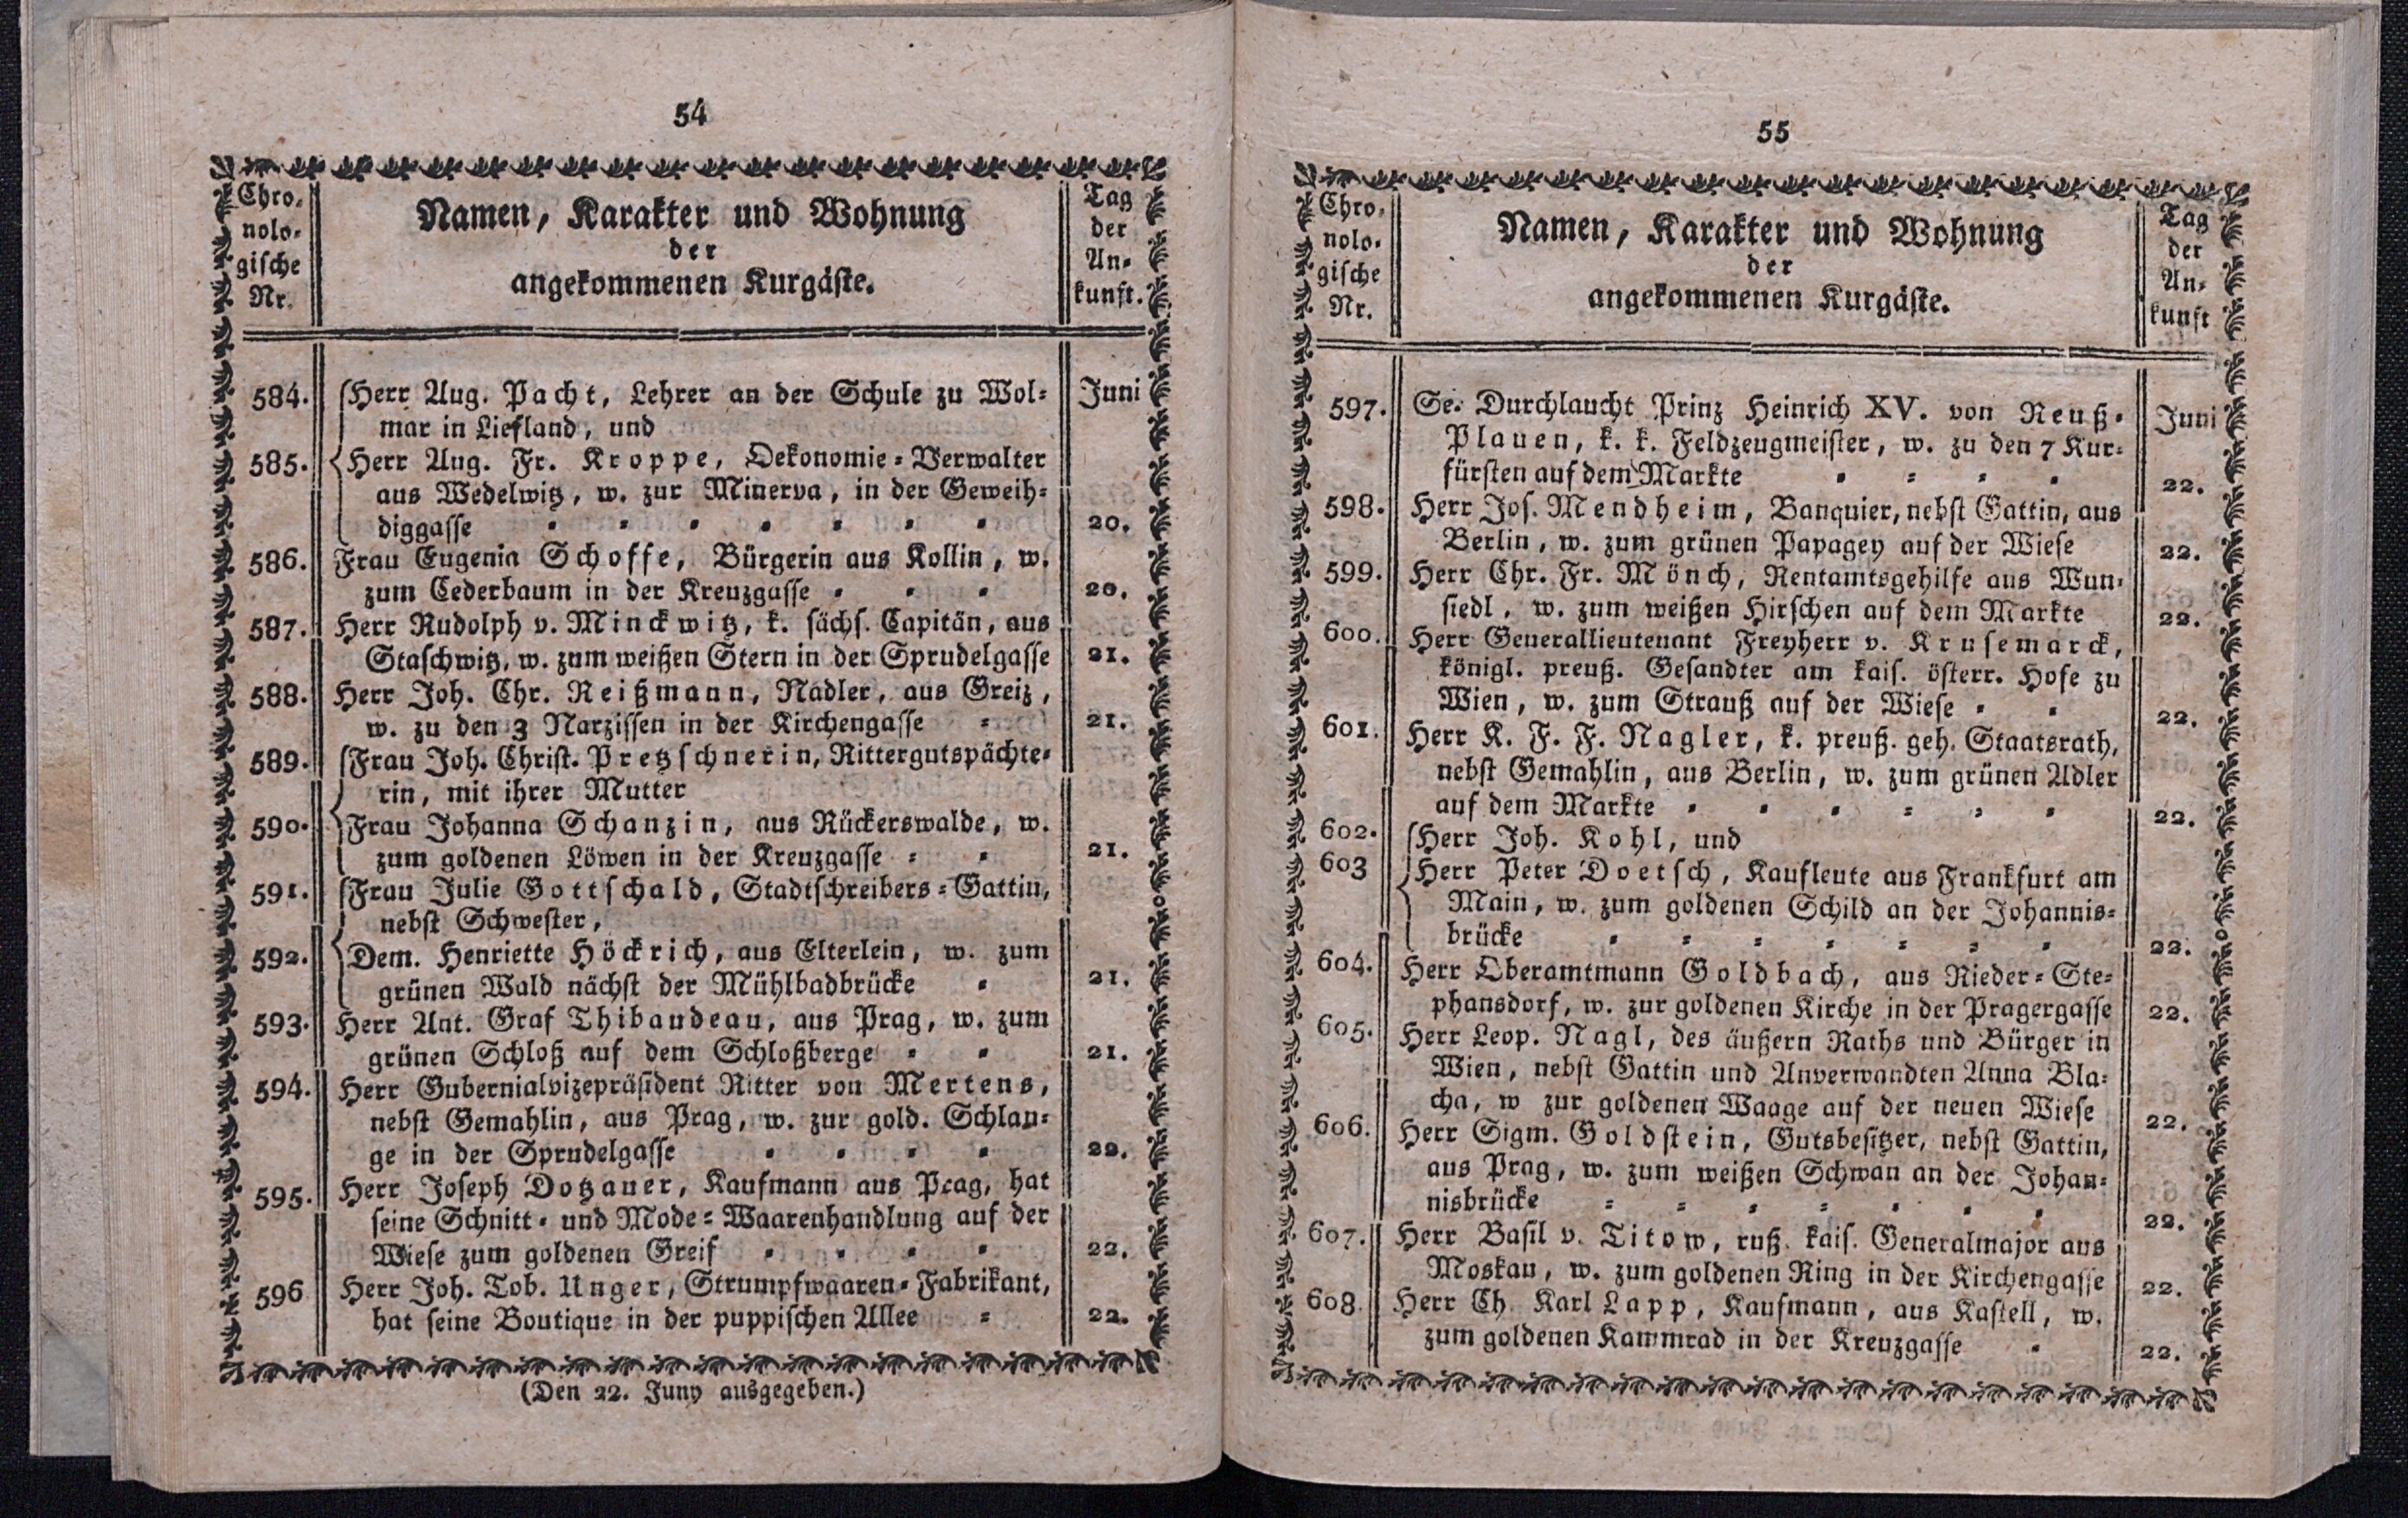 54
Chro-
nolo-
gische
Nr.
Namen, Karakter und Wohnung
der
angekommenen Kurgäste.
Tag
der
An-
kunft.
584. Herr Aug. Pacht, Lehrer an der Schule zu Wol- Juni
mar in Liefland, und
585. Herr Aug. Fr. Kroppe, Oekonomie-Verwalter
aus Wedelwitz, w. zur Minerva, in der Geweih-
diggasse 20.
586. Frau Eugenia Schoffe, Bürgerin aus Kollin, w.
zum Cederbaum in der Kreuzgasse 20.
587. Herr Rudolph v. Minckwitz, k. sächs. Capitän, aus
Staschwitz, w. zum weißen Stern in der Sprudelgasse 21.
588. Herr Joh. Chr. Reißmann, Nadler, aus Greiz,
w. zu den 3 Narzissen in der Kirchengasse 21.
589. Frau Joh. Christ. Pretzschnerin, Rittergutspächte-
rin, mit ihrer Mutter
590. Frau Johanna Schanzin, aus Rückerswalde, w.
zum goldenen Löwen in der Kreuzgasse 21.
591. Frau Julie Gottschald, Stadtschreibers-Gattin,
nebst Schwester,
592. Dem. Henriette Höckrich, aus Elterlein, w. zum
grünen Wald nächst der Mühlbadbrücke 21.
593. Herr Ant. Graf Thibaudeau, aus Prag, w. zum
grünen Schloß auf dem Schloßberge 21.
594. Herr Gubernialvizepräsident Ritter von Mertens,
nebst Gemahlin, aus Prag, w. zur gold. Schlan-
ge in der Sprudelgasse 22.
595. Herr Joseph Dotzauer, Kaufmann aus Prag, hat
seine Schnitt- und Mode-Waarenhandlung auf der
Wiese zum goldenen Greif 22.
596 Herr Joh. Tob. Unger, Strumpfwaaren-Fabrikant,
hat seine Boutique in der puppischen Allee 22.
(Den 22. Juny ausgegeben.)
55
Chro-
nolo-
gische
Nr.
Namen, Karakter und Wohnung
der
angekommenen Kurgäste.
Tag
der
An-
kunft
597. Se. Durchlaucht Prinz Heinrich XV. von Reuß- Juni
Plauen, k. k. Feldzeugmeister, w. zu den 7 Kur-
fürsten auf dem Markte 22.
598. Herr Jos. Mendheim, Banquier, nebst Gattin, aus
Berlin, w. zum grünen Papagey auf der Wiese 22.
599. Herr Chr. Fr. Mönch, Rentamtsgehilfe aus Wun-
siedl, w. zum weißen Hirschen auf dem Markte 22.
600. Herr Generallieutenant Freyherr v. Krusemarck,
königl. preuß. Gesandter am kais. österr. Hofe zu
Wien, w. zum Strauß auf der Wiese 22.
601. Herr K. F. F. Nagler, k. preuß. geh. Staatsrath,
nebst Gemahlin, aus Berlin, w. zum grünen Adler
auf dem Markte 22.
602. Herr Joh. Kohl, und
603 Herr Peter Doetsch, Kaufleute aus Frankfurt am
Main, w. zum goldenen Schild an der Johannis-
brücke 22.
604. Herr Oberamtmann Goldbach, aus Nieder-Ste-
phansdorf, w. zur goldenen Kirche in der Pragergasse 22.
605. Herr Leop. Nagl, des äußern Raths und Bürger in
Wien, nebst Gattin und Anverwandten Anna Bla-
cha, w zur goldenen Waage auf der neuen Wiese 22.
606. Herr Sigm. Goldstein, Gutsbesitzer, nebst Gattin,
aus Prag, w. zum weißen Schwan an der Johan-
nisbrücke 22.
607. Herr Basil v. Titow, ruß. kais. Generalmajor aus
Moskau, w. zum goldenen Ring in der Kirchengasse 22.
608. Herr Ch. Karl Lapp, Kaufmann, aus Kastell, w.
zum goldenen Kammrad in der Kreuzgasse 22.